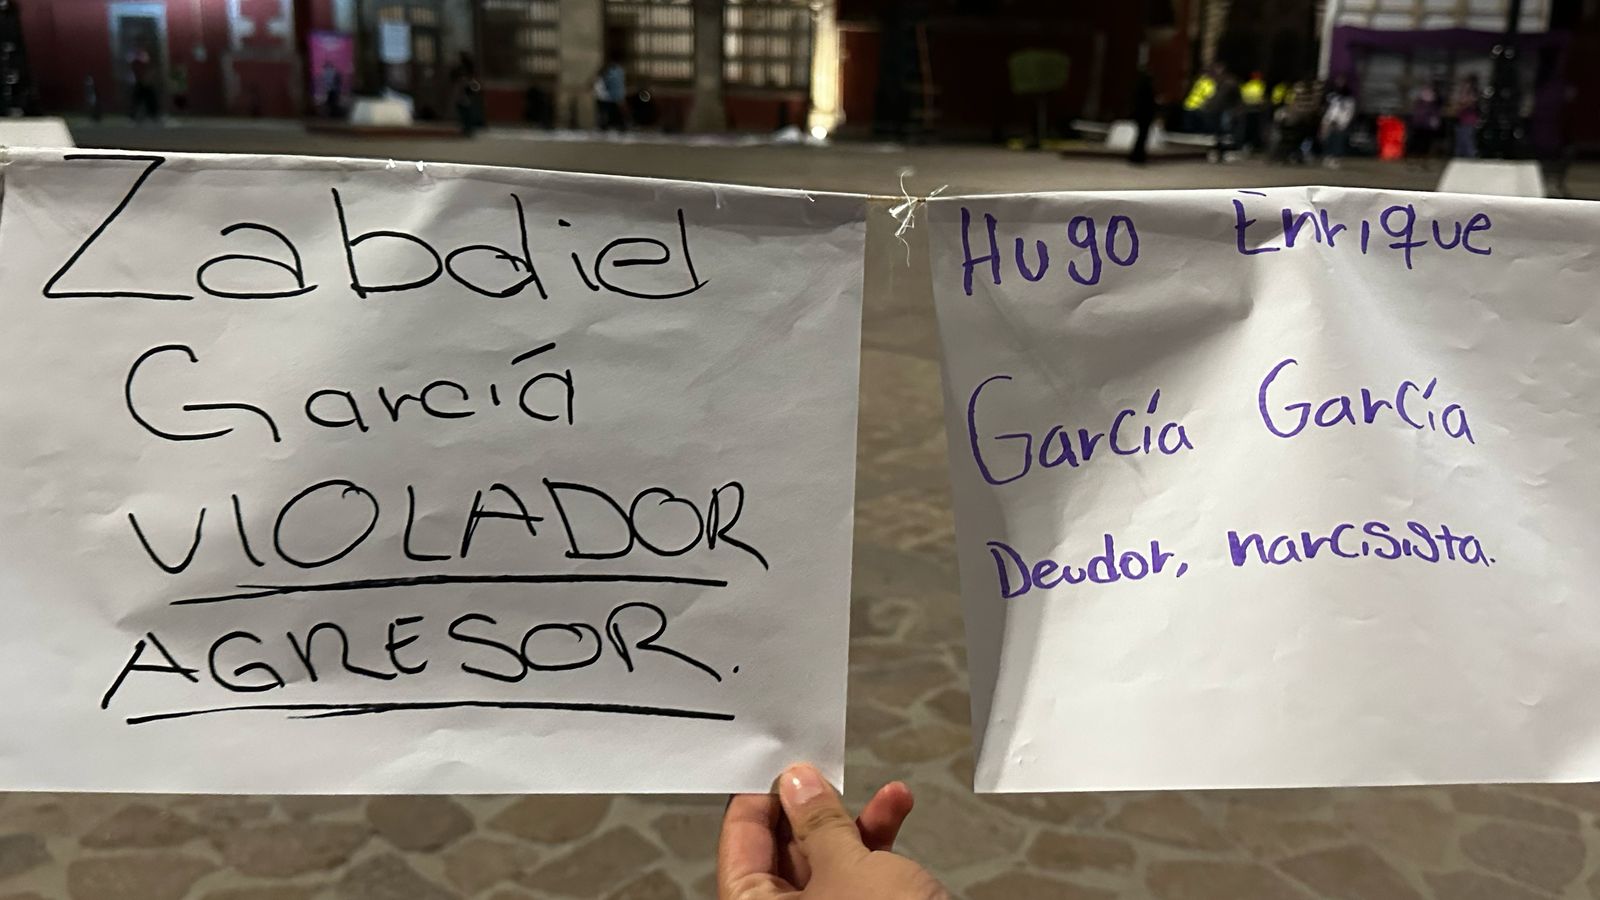 Zabdiel
García
VIOLADOR
AGRESOR.
Hugo Enrique
García García
Deudor, narcisista.